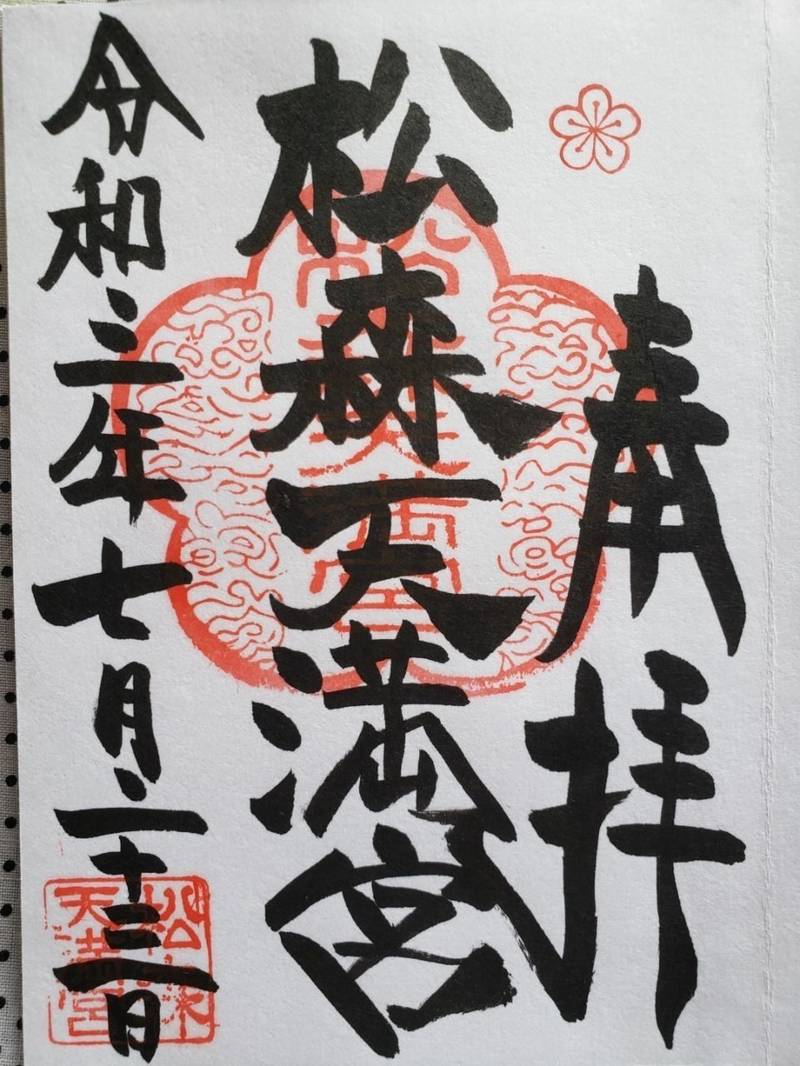 奉拝
松森天満宮
令和三年七月二十三日
松森
天満宮